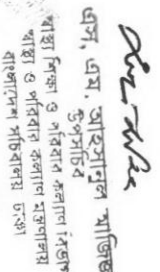 এস, এম, আহসানুল আজিজ
উপসচিব
স্বাস্থ্য শিক্ষা ও পরিবার কল্যাণ বিভাগ
স্বাস্থ্য ও পরিবার কল্যাণ মন্ত্রণালয়
বাংলাদেশ সচিবালয় ঢাকা